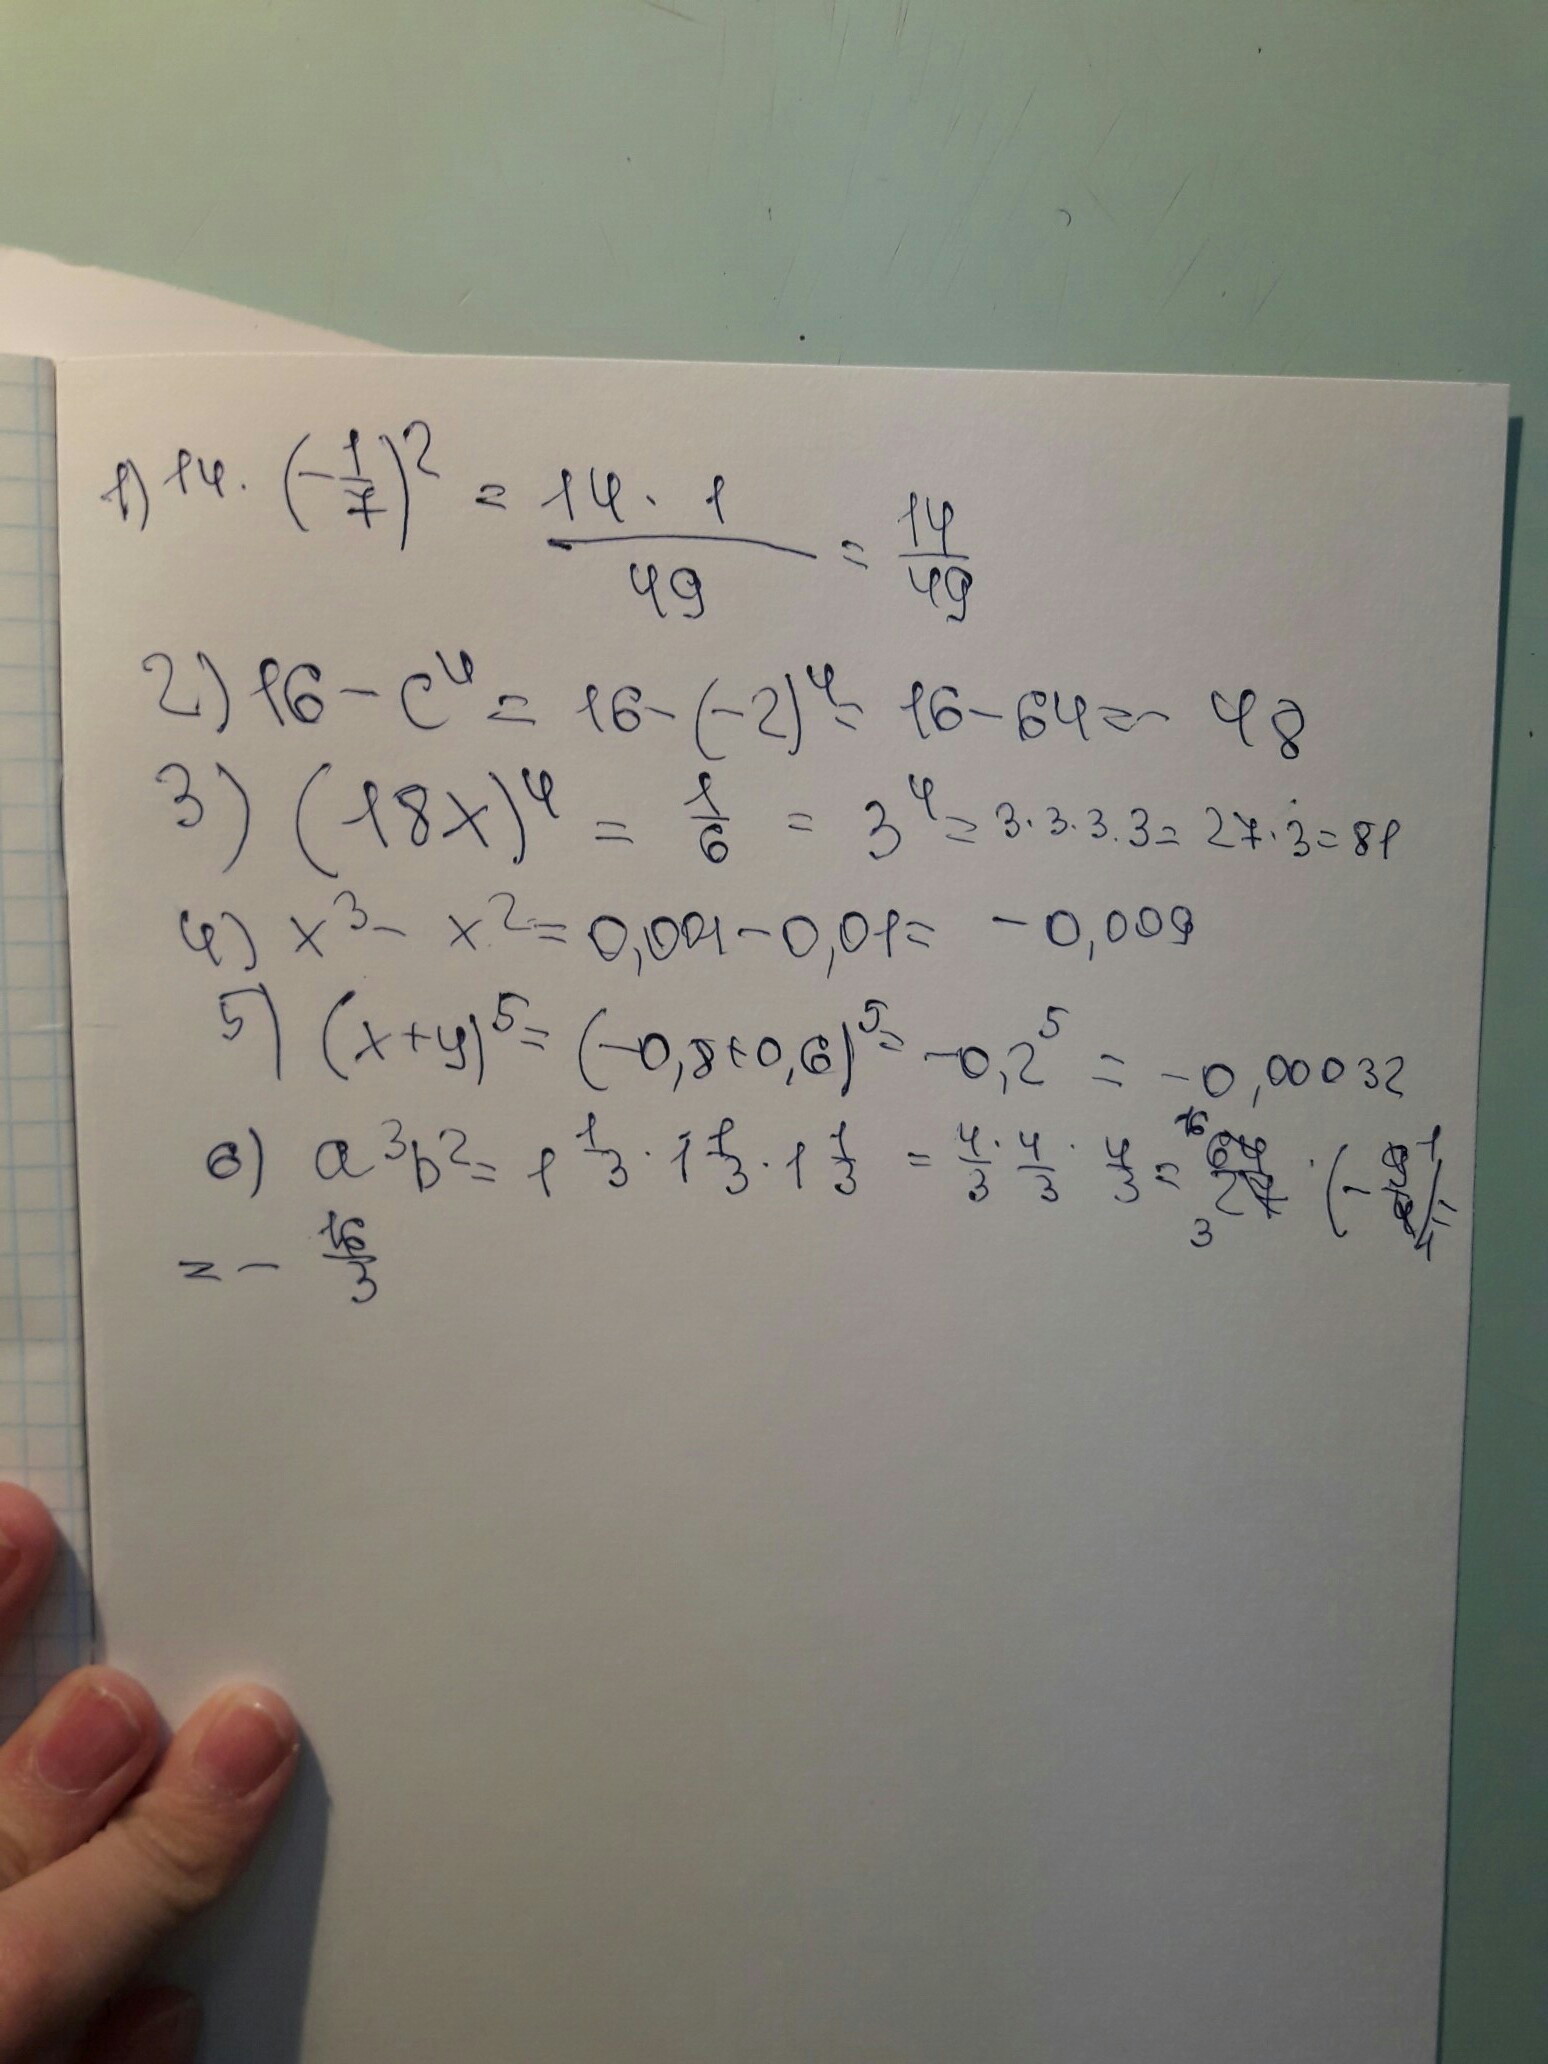 1) 14 · (-1/7)² = 14 · 1/49 = 14/49
2) 16 - c⁴ = 16 - (-2)⁴ = 16 - 64 = - 48
3) (18x)⁴ = 1/6 = 3⁴ = 3·3·3·3 = 27·3 = 81
4) x³ - x² = 0,001 - 0,01 = -0,009
5) (x+y)⁵ = (-0,8+0,6)⁵ = -0,2⁵ = -0,00032
6) a³b² = 1 1/3 · 1 1/3 · 1 1/3 = 4/3 · 4/3 · 4/3 = 16 64/27 3 · (-
= - 16/3